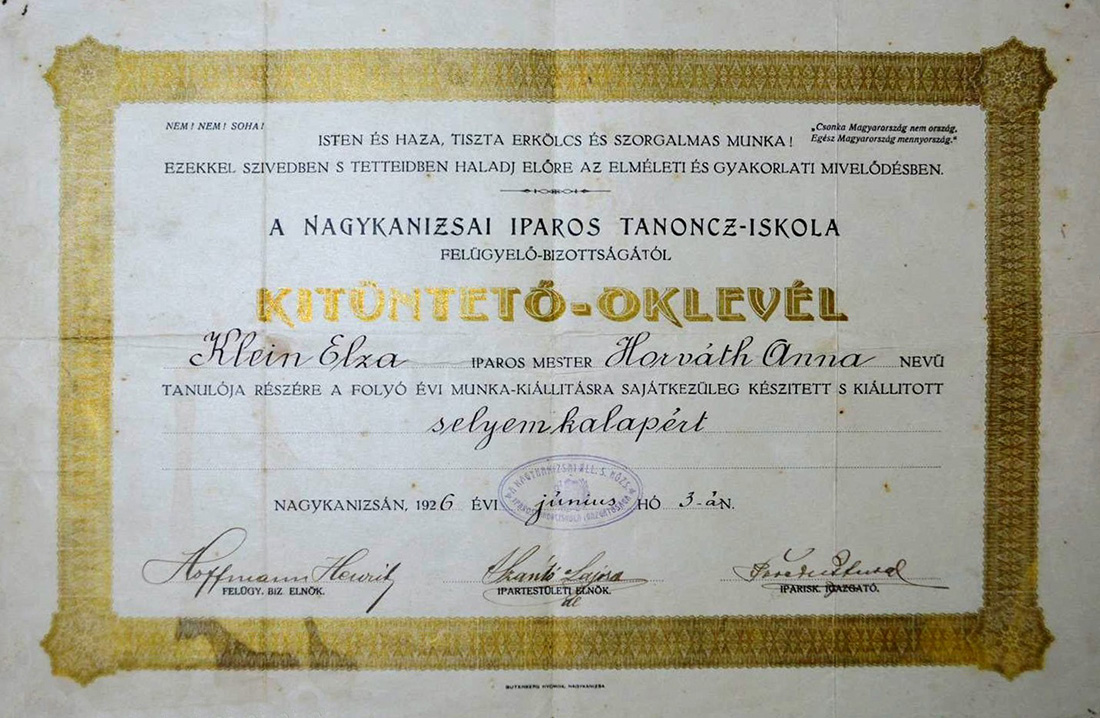 NEM! NEM! SOHA!
„Csonka Magyarország nem ország,
Egész Magyarország mennyország.“
ISTEN ÉS HAZA, TISZTA ERKÖLCS ÉS SZORGALMAS MUNKA!
EZEKKEL SZIVEDBEN S TETTEIDBEN HALADJ ELŐRE AZ ELMÉLETI ÉS GYAKORLATI MIVELŐDÉSBEN.
A NAGYKANIZSAI IPAROS TANONCZ-ISKOLA
FELÜGYELŐ-BIZOTTSÁGÁTÓL
KITÜNTETŐ-OKLEVÉL
Klein Elza IPAROS MESTER Horváth Anna NEVŰ
TANULÓJA RÉSZÉRE A FOLYÓ ÉVI MUNKA-KIÁLLITÁSRA SAJÁTKEZÜLEG KÉSZITETT S KIÁLLITOTT
selyemkalapért
A NAGYKANIZSAI ÁLL. S. KÖZS.
NAGYKANIZSÁN, 1926 ÉVI június HÓ 3-án.
Hoffmann Henrik
Szántó Lajos
FELÜGY. BIZ ELNÖK.
IPARTESTÜLETI ELNÖK.
IPARISK. IGAZGATÓ.
GUTENBERG NYOMDA, NAGYKANIZSA